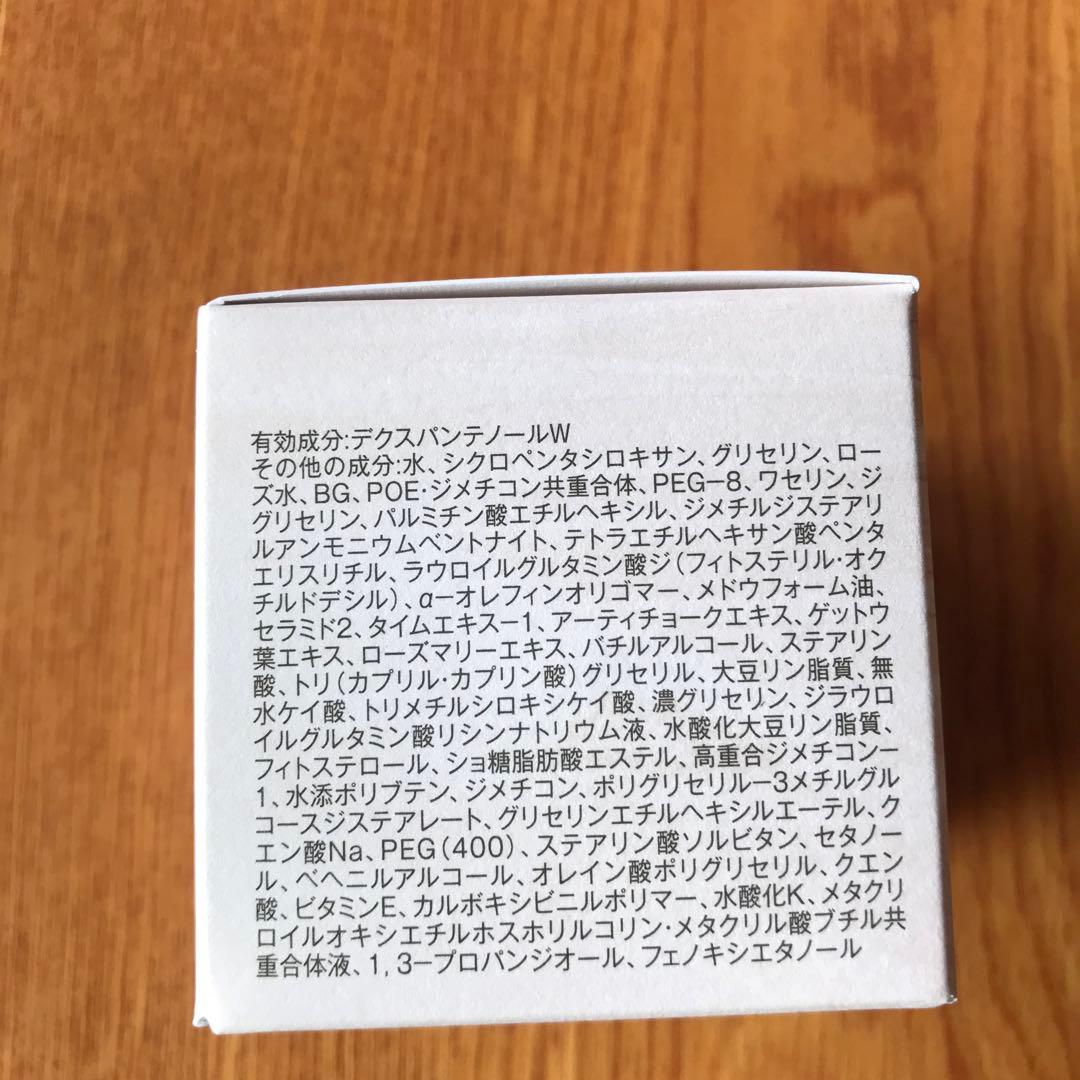 有効成分:デクスパンテノールW
その他の成分:水、シクロペンタシロキサン、グリセリン、ロー
ズ水、BG、POE・ジメチコン共重合体、PEG−8、ワセリン、ジ
グリセリン、パルミチン酸エチルヘキシル、ジメチルジステアリ
ルアンモニウムベントナイト、テトラエチルヘキサン酸ペンタ
エリスリチル、ラウロイルグルタミン酸ジ(フィトステリル・オク
チルドデシル)、α−オレフィンオリゴマー、メドウフォーム油、
セラミド2、タイムエキス−1、アーティチョークエキス、ゲットウ
葉エキス、ローズマリーエキス、バチルアルコール、ステアリン
酸、トリ(カプリル・カプリン酸)グリセリル、大豆リン脂質、無
水ケイ酸、トリメチルシロキシケイ酸、濃グリセリン、ジラウロ
イルグルタミン酸リシンナトリウム液、水酸化大豆リン脂質、
フィトステロール、ショ糖脂肪酸エステル、高重合ジメチコン−
1、水添ポリブテン、ジメチコン、ポリグリセリル−3メチルグル
コースジステアレート、グリセリンエチルヘキシルエーテル、ク
エン酸Na、PEG(400)、ステアリン酸ソルビタン、セタノー
ル、ベヘニルアルコール、オレイン酸ポリグリセリル、クエン
酸、ビタミンE、カルボキシビニルポリマー、水酸化K、メタクリ
ロイルオキシエチルホスホリルコリン・メタクリル酸ブチル共
重合体液、1,3−プロパンジオール、フェノキシエタノール